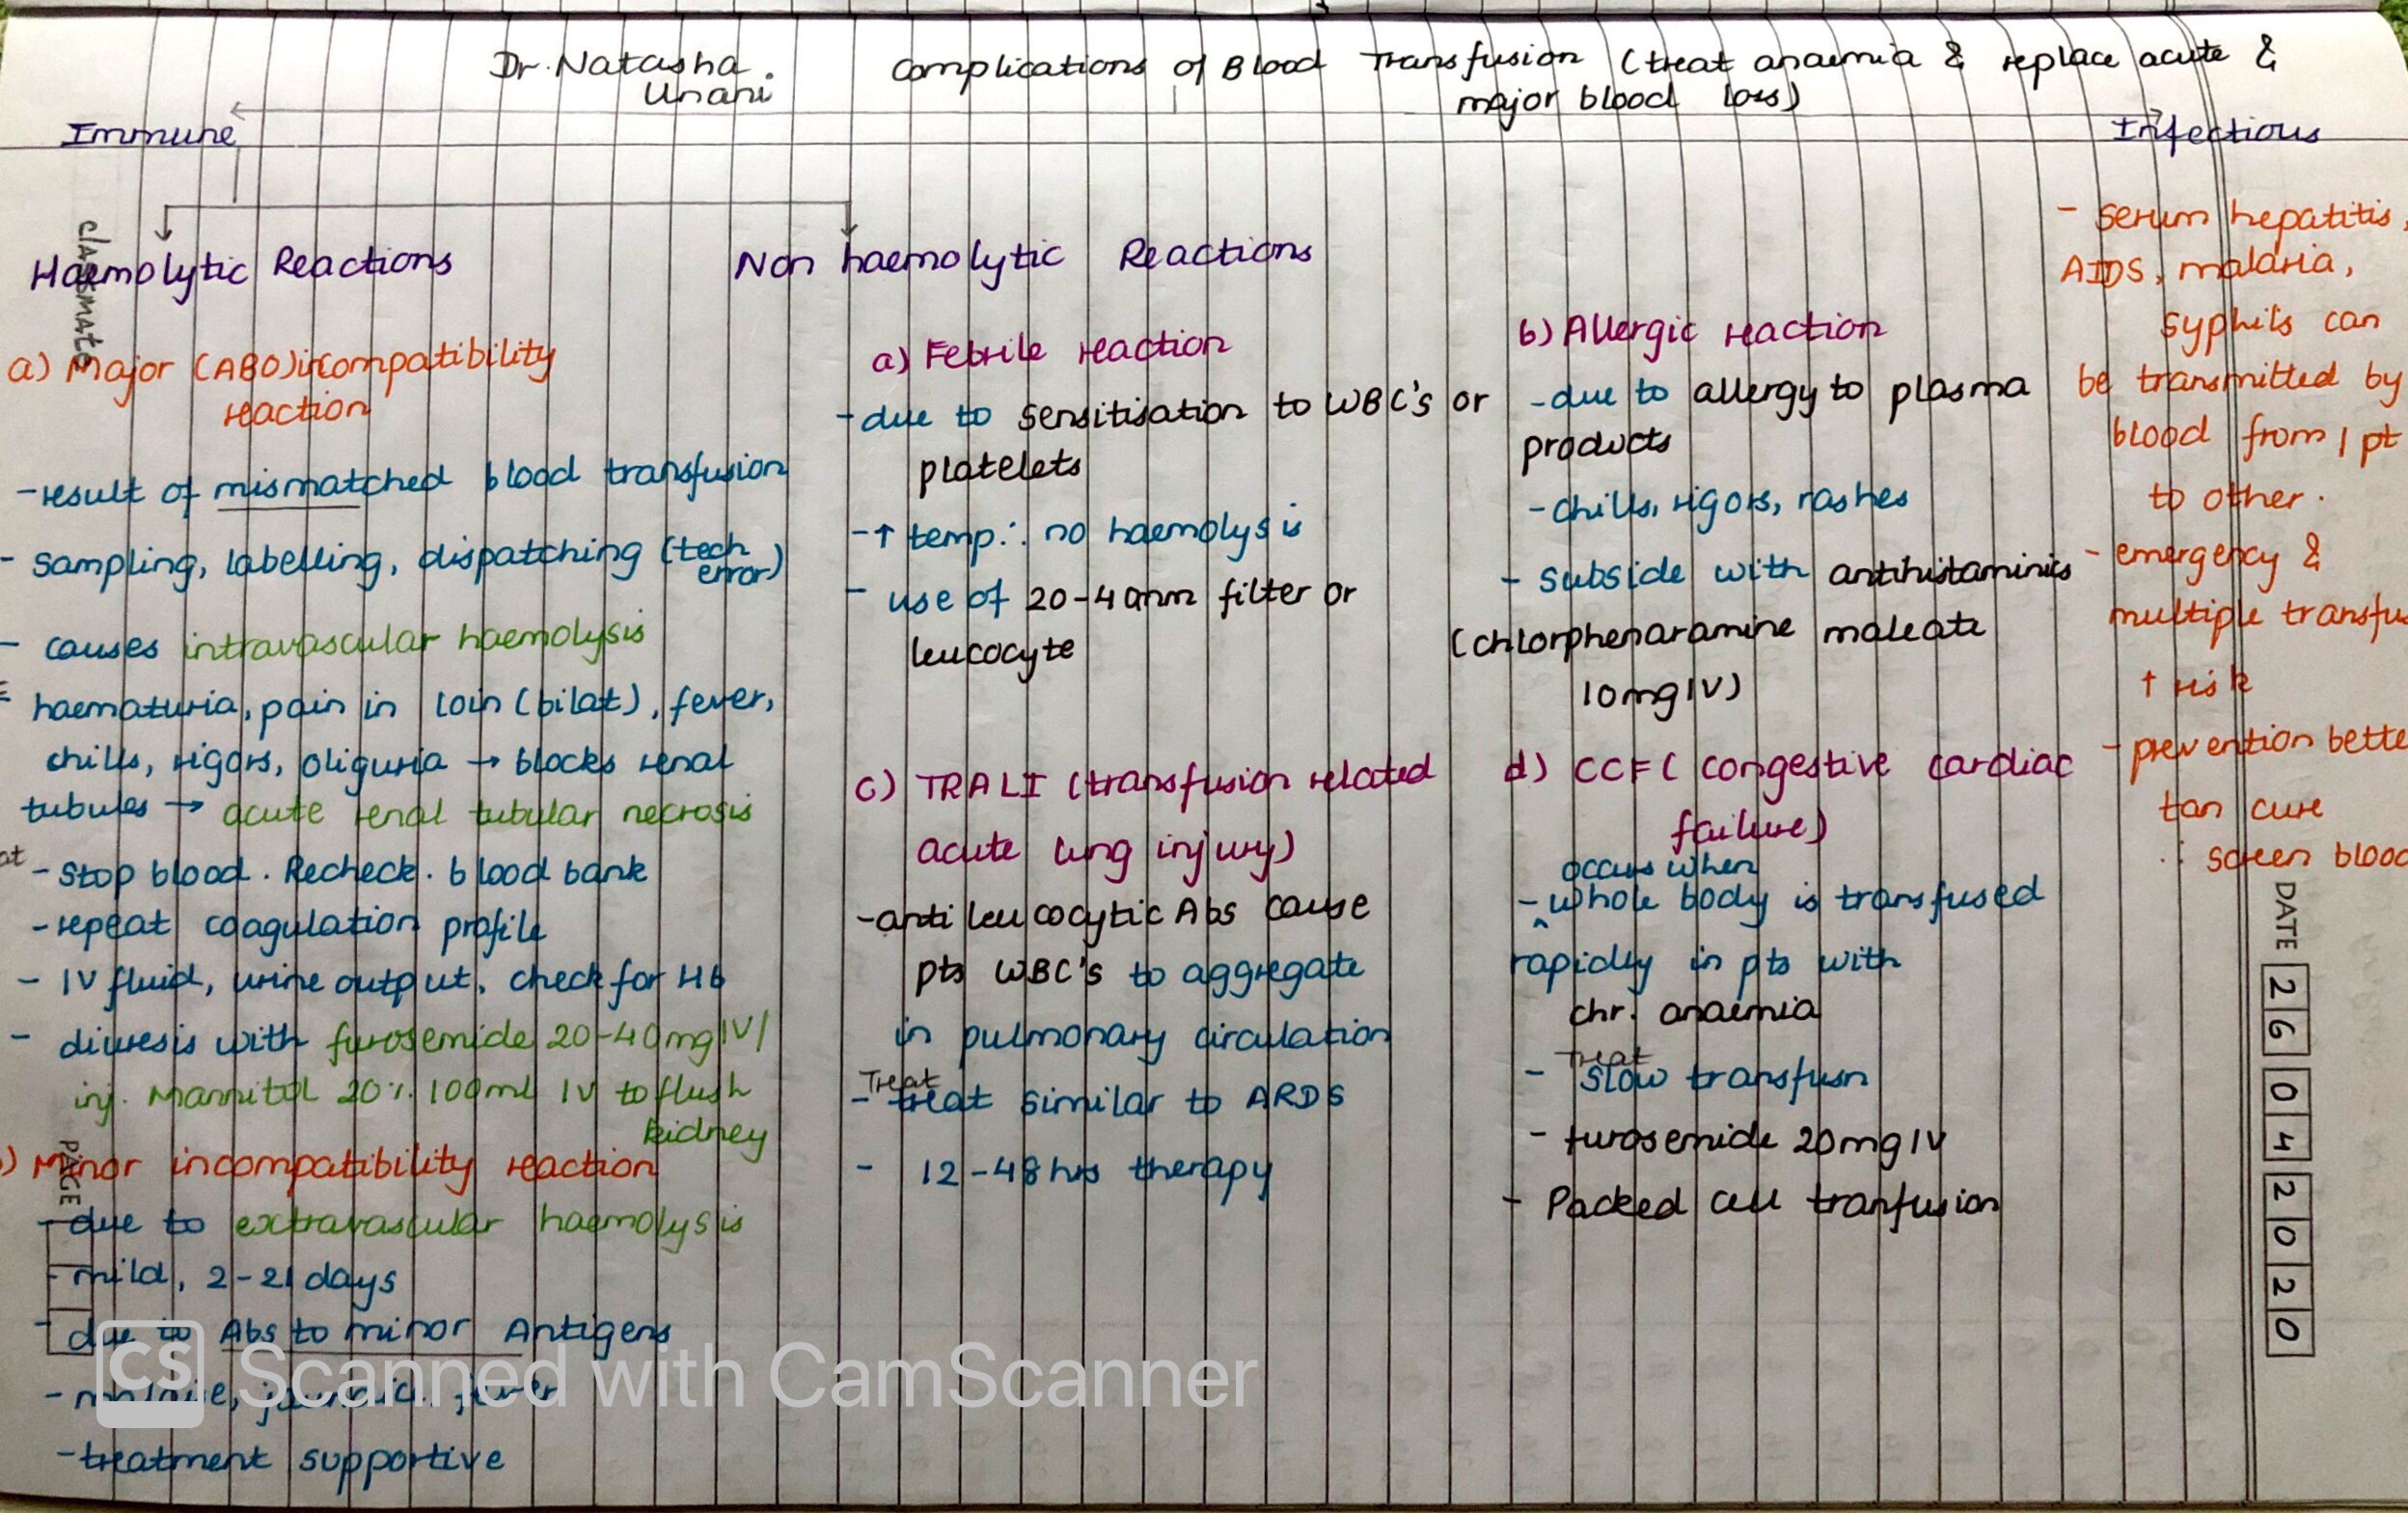 Dr. Natasha Unani
Complications of Blood Transfusion (treat anaemia & replace acute &
major blood loss)
Immune
Infectious
Haemolytic Reactions
Non haemolytic Reactions
classmate
a) Major (ABO) incompatibility
reaction
- result of mismatched blood transfusion
- sampling, labelling, dispatching (tech error)
- causes intravascular haemolysis
haematuria, pain in loin (bilat), fever,
chills, rigors, oliguria → blocks renal
tubules → acute renal tubular necrosis
- Stop blood. Recheck. blood bank
- repeat coagulation profile
- IV fluid, urine output, check for Hb
- diuresis with furosemide 20-40mg IV/
inj. Mannitol 20% 100ml IV to flush
kidney
) Minor incompatibility reaction
PAGE
- due to extravascular haemolysis
- mild, 2-21 days
- due to Abs to minor Antigens
- malaise, jaundice, fever
- treatment supportive
a) Febrile reaction
- due to sensitisation to WBC's or
platelets
- ↑ temp ∴ no haemolysis
- use of 20-40nm filter or
leucocyte
b) Allergic reaction
- due to allergy to plasma
products
- chills, rigors, rashes
- subside with antihistaminics
(chlorphenaramine maleate
10mg IV)
c) TRALI (transfusion related
acute lung injury)
- anti leucocytic Abs cause
pts WBC's to aggregate
in pulmonary circulation
Treat
- treat similar to ARDS
- 12-48 hrs therapy
d) CCF (congestive cardiac
failure)
occurs when
- whole body is transfused
rapidly in pts with
chr. anaemia
Treat
- Slow transfusn
- furosemide 20mg IV
- Packed cell tranfusion
- serum hepatitis,
AIDS, malaria,
syphils can
be transmitted by
blood from 1 pt
to other.
- emergency &
multiple transfu
↑ risk
- prevention bette
tan cure
∴ screen blood
DATE 26042020
CS Scanned with CamScanner